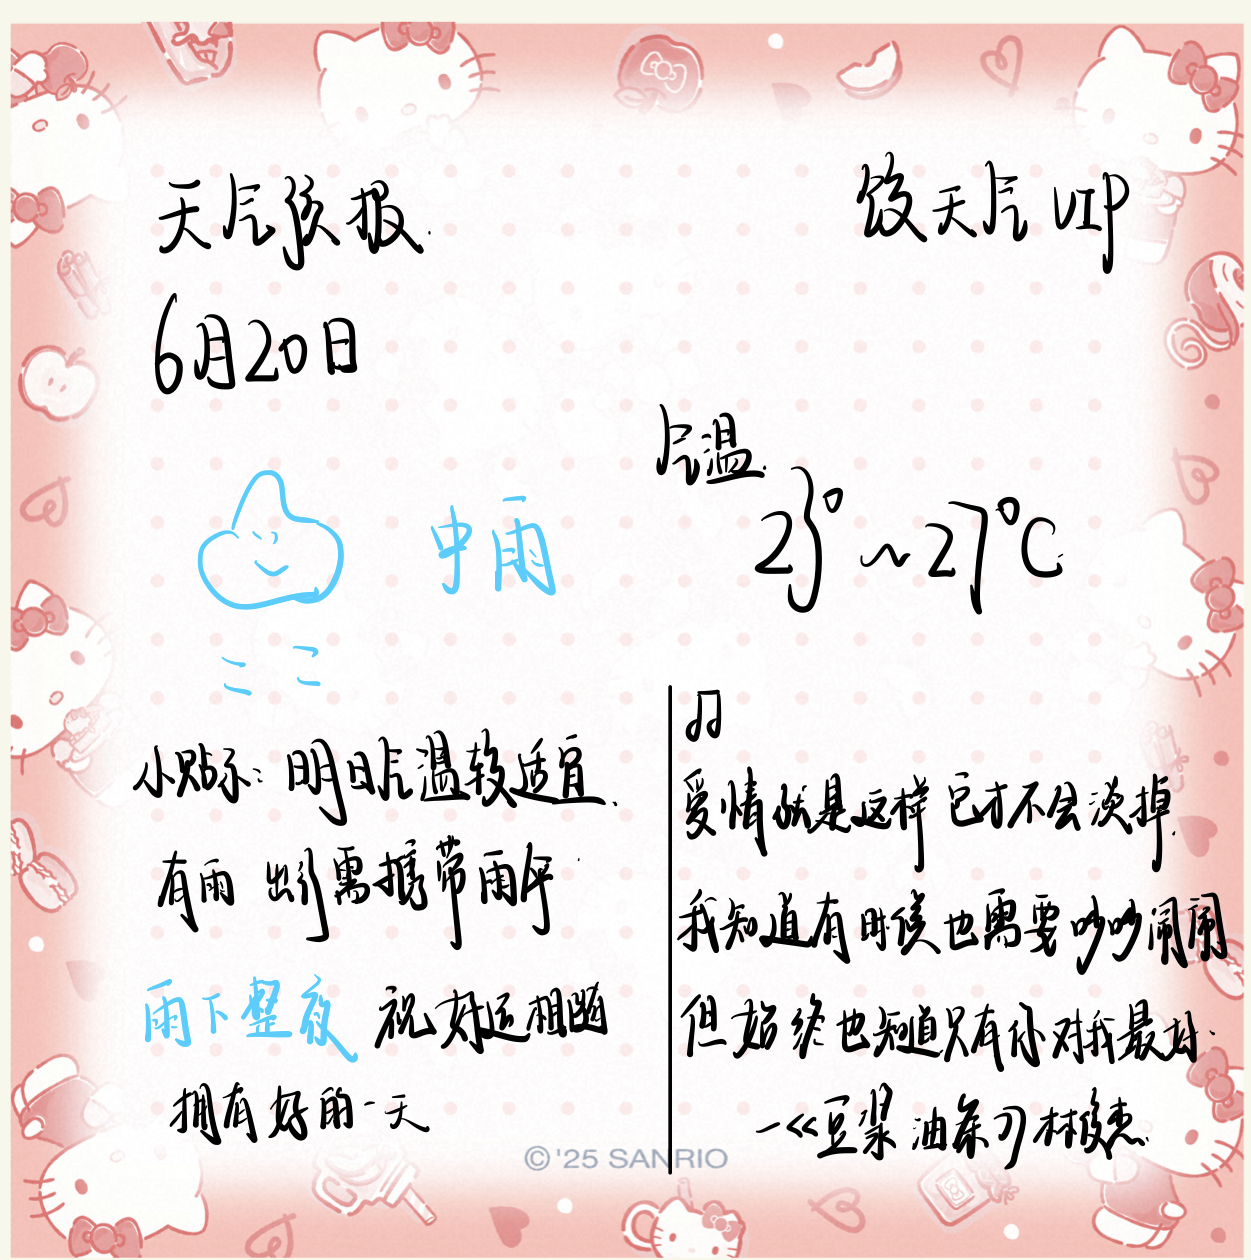 天气预报.
饺天气VIP
6月20日
气温.
23°~27°C
中雨
小贴示:明日气温较适宜.
有雨 出行需携带雨伞.
雨下整夜 祝好运相随
拥有好的一天
爱情就是这样 它才不会淡掉.
我知道有时候也需要吵吵闹闹
但始终也知道只有你对我最好.
—《豆浆油条》林俊杰.
©'25 SANRIO